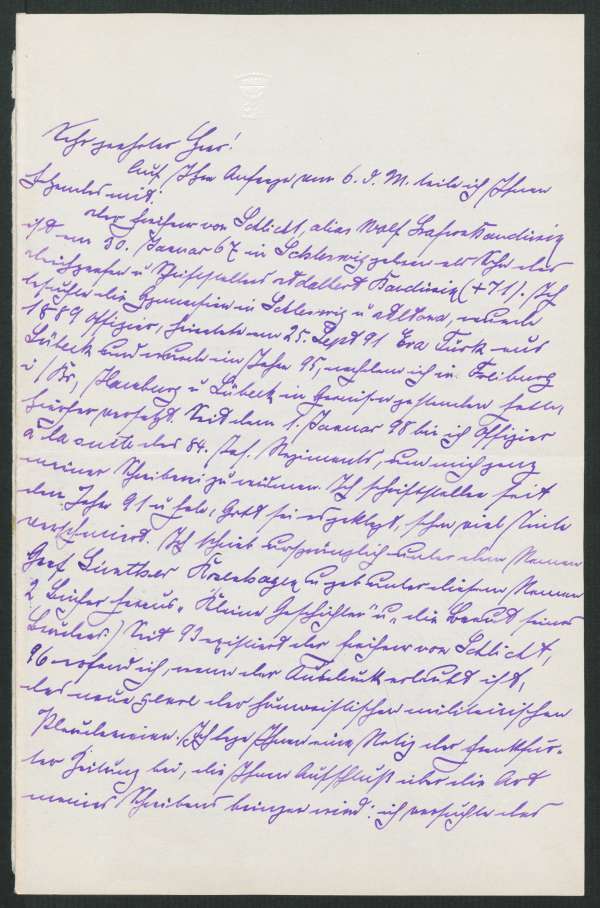 Sehr geehrter Herr!
Auf Ihre Anfrage vom 6. d. M. teile ich Ihnen
Folgendes mit:
Der Freiherr von Schlicht, alias Wolf Baudissin
ist am 30. Januar 67 in Schleswig geboren als Sohn des
u Schriftstellers Adalbert Baudissin (+71). Ich
besuchte die Gymnasien in Schleswig u Altona, wurde
1889 Offizier, heiratete am 25. Sept 91 Eva Türk aus
Lübeck und wurde im Jahre 95, nachdem ich in Freiburg
i/Br, Hamburg u Lübeck in Garnison gestanden hatte,
hierher versetzt. Seit dem 1. Januar 98 bin ich Offizier
à la suite des 84. Inf. Regiments, um mich ganz
meiner Schreiberei zu widmen. Ich schriftstellere seit
dem Jahre 91 u habe, Gott sei es geklagt, schon viel Tinte
verschmiert. Ich schrieb ursprünglich unter dem Namen
Graf Günther Rosenhagen u gab unter diesem Namen
2 Bücher heraus „Kleine Geschichten" u „die Braut seines
Bruders." Seit 93 existiert der Freiherr von Schlicht,
96 erfand ich, wenn der Ausdruck erlaubt ist,
das neue Genre der humoristischen militärischen
Plaudereien. Ich lege Ihnen eine Notiz der Frankfur-
ter Zeitung bei, die Ihnen Aufschluß über die Art
meines Schreibens bringen wird: ich versuchte das